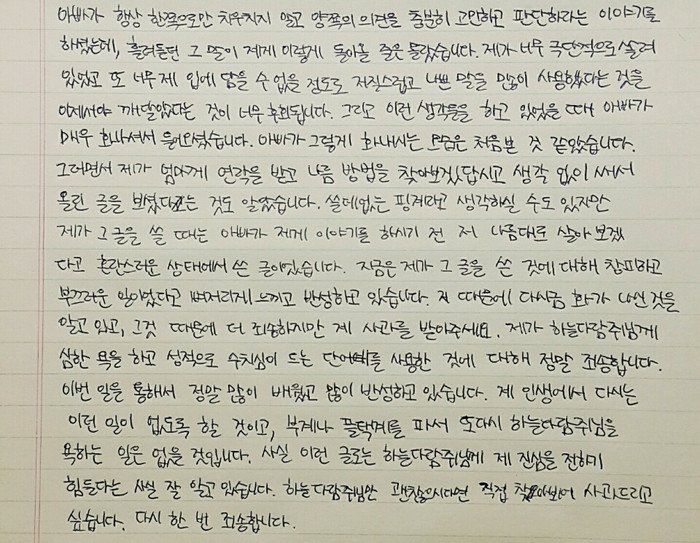 아빠가 항상 한쪽으로만 치우치지 말고 양쪽의 의견을 충분히 고민하고 판단하라는 이야기를
하셨는데, 흘려듣던 그 말이 제게 이렇게 돌아올 줄은 몰랐습니다. 제가 너무 극단적으로 쏠려
있었고 또 너무 제 입에 담을 수 없을 정도로 저질스럽고 나쁜 말을 많이 사용했다는 것을
이제서야 깨달았다는 것이 너무 후회됩니다. 그리고 이런 생각들을 하고 있었을 때 아빠가
매우 화나셔서 들어오셨습니다. 아빠가 그렇게 화내시는 모습은 처음 본 것 같았습니다.
그러면서 제가 엄마께 연락을 받고 나름 방법을 찾아보겠답시고 생각 없이 써서
올린 글을 보셨다는 것도 알았습니다. 쓸데없는 핑계라고 생각하실 수도 있지만
제가 그 글을 쓸 때는 아빠가 제게 이야기를 하시기 전 저 나름대로 살아 보겠
다고 혼란스러운 상태에서 쓴 글이었습니다. 지금은 제가 그 글을 쓴 것에 대해 창피하고
부끄러운 일이었다고 뼈저리게 느끼고 반성하고 있습니다. 저 때문에 다시금 화가 나신 것을
알고 있고, 그것 때문에 더 죄송하지만 제 사과를 받아주세요. 제가 하늘다람쥐님께
심한 욕을 하고 성적으로 수치심이 드는 단어를 사용한 것에 대해 정말 죄송합니다.
이번 일을 통해서 정말 많이 배웠고 많이 반성하고 있습니다. 제 인생에서 다시는
이런 일이 없도록 할 것이고, 부계나 플택계를 파서 또다시 하늘다람쥐님을
욕하는 일은 없을 것입니다. 사실 이런 글로는 하늘다람쥐님께 제 진심을 전하기
힘들다는 사실 잘 알고 있습니다. 하늘다람쥐님만 괜찮으시다면 직접 찾아뵈어 사과드리고
싶습니다. 다시 한 번 죄송합니다.